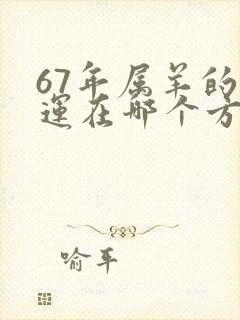 67年属羊的
運在哪个方
喻平